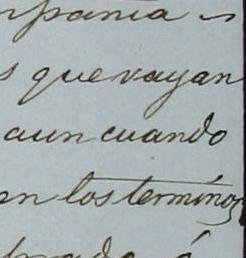 mpania
s que vayan
aun cuando
en los terminos